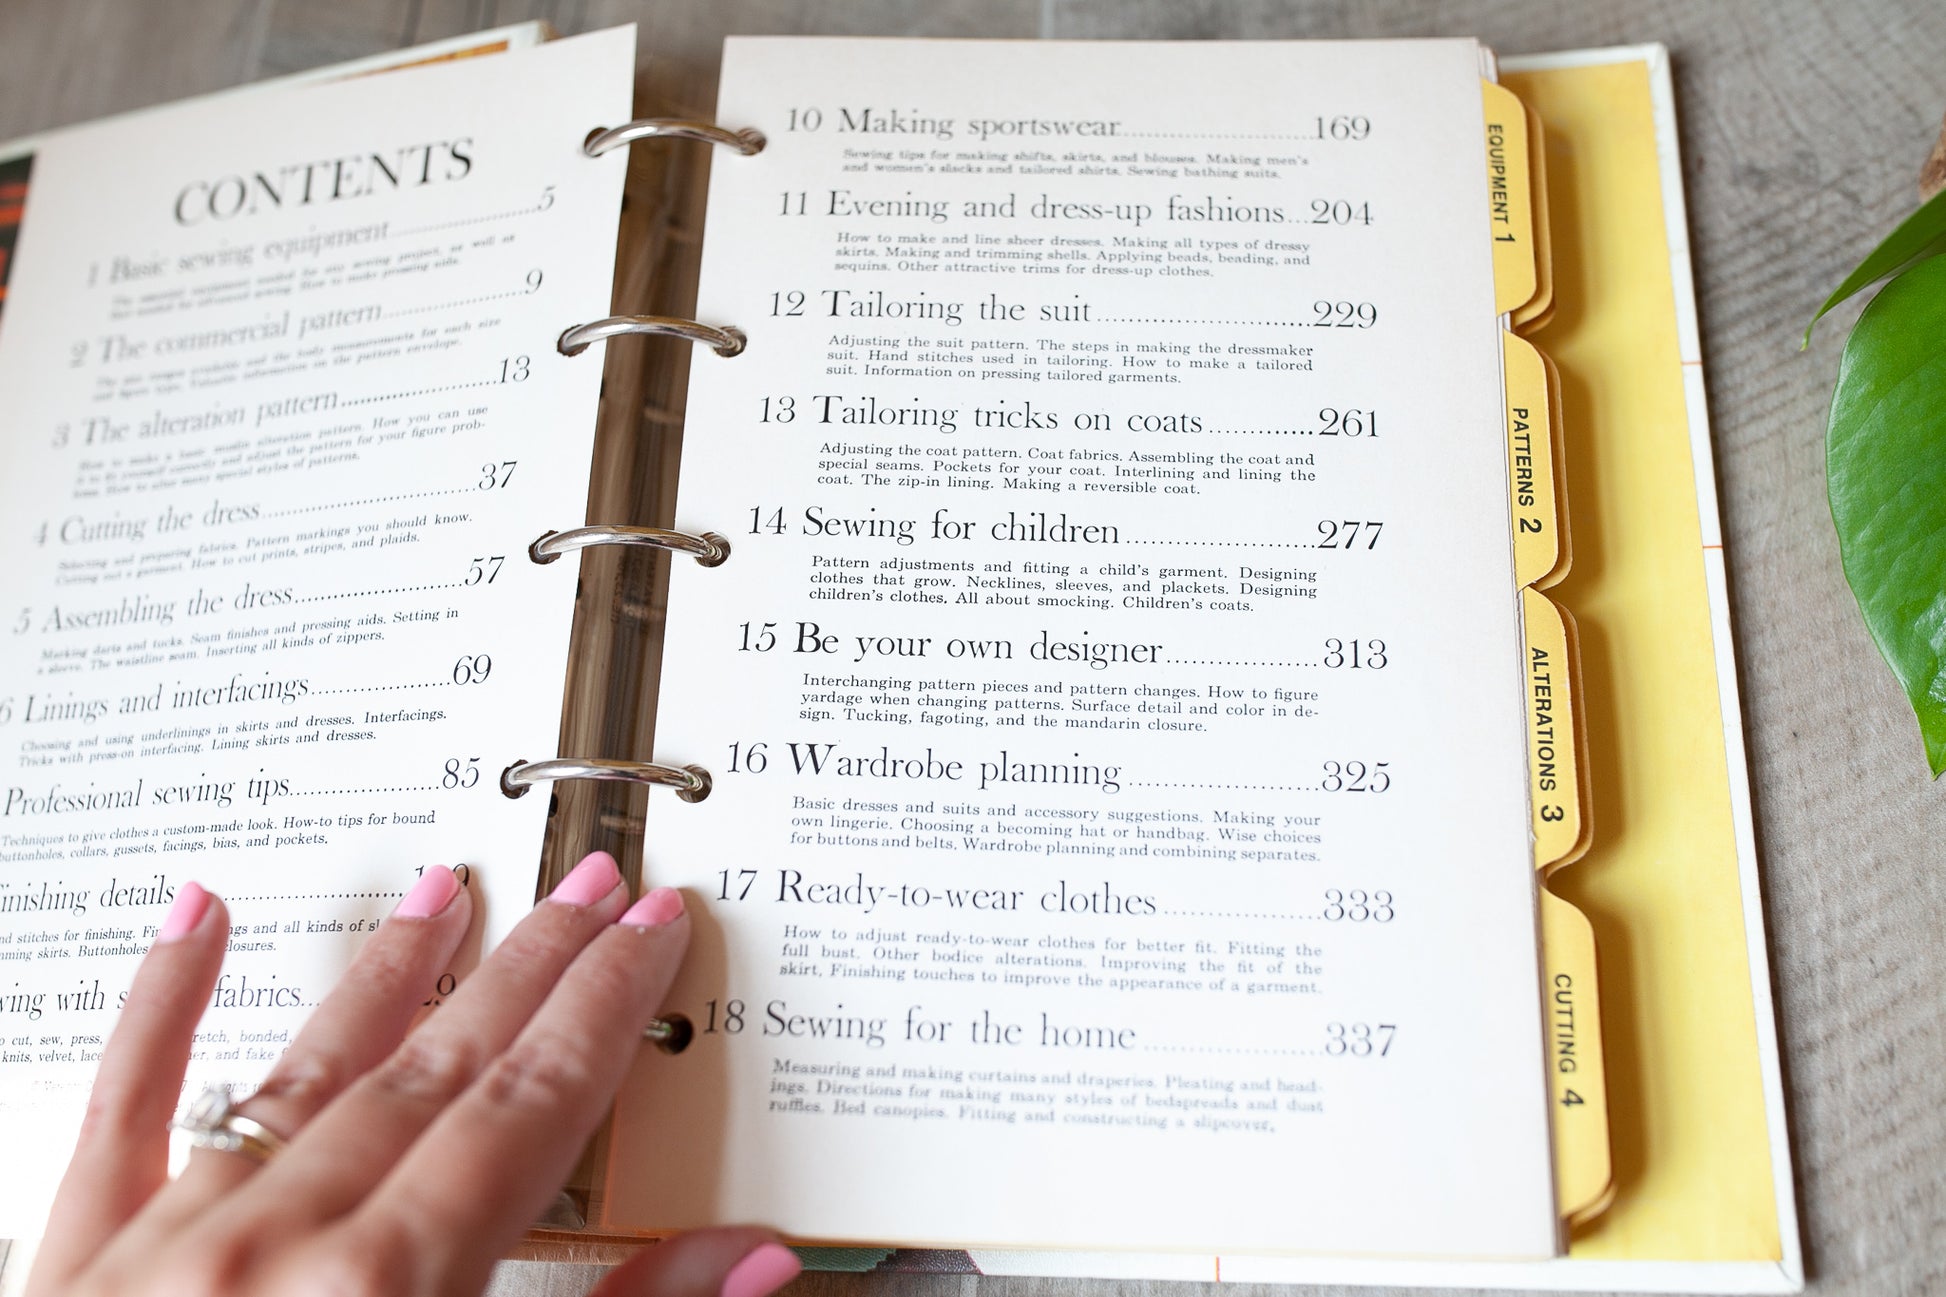 CONTENTS
1 Basic sewing equipment..........5
The essential equipment needed for any sewing project, as well as
that needed for advanced sewing. How to make pressing aids.
2 The commercial pattern..........9
and the body measurements for each size
and figure type. Valuable information on the pattern envelope.
3 The alteration pattern..........13
How to make a basic muslin alteration pattern. How you can use
it to fit yourself correctly and adjust the pattern for your figure prob-
lems. How to alter many special styles of patterns.
4 Cutting the dress..........37
Selecting and preparing fabrics. Pattern markings you should know.
Cutting out a garment. How to cut prints, stripes, and plaids.
5 Assembling the dress..........57
Marking darts and tucks. Seam finishes and pressing aids. Setting in
a sleeve. The waistline seam. Inserting all kinds of zippers.
6 Linings and interfacings..........69
Choosing and using underlinings in skirts and dresses. Interfacings.
Tricks with press-on interfacing. Lining skirts and dresses.
Professional sewing tips..........85
Techniques to give clothes a custom-made look. How-to tips for bound
buttonholes, collars, gussets, facings, bias, and pockets.
inishing details
nd stitches for finishing. ngs and all kinds of
ming skirts. Buttonholes losures.
wing with fabrics...
o cut, sew, press, retch, bonded,
knits, velvet, and fake
10 Making sportswear..........169
Sewing tips for making shifts, skirts, and blouses. Making men's
and women's slacks and tailored shirts. Sewing bathing suits.
11 Evening and dress-up fashions...204
How to make and line sheer dresses. Making all types of dressy
skirts. Making and trimming shells. Applying beads, beading, and
sequins. Other attractive trims for dress-up clothes.
12 Tailoring the suit..........229
Adjusting the suit pattern. The steps in making the dressmaker
suit. Hand stitches used in tailoring. How to make a tailored
suit. Information on pressing tailored garments.
13 Tailoring tricks on coats..........261
Adjusting the coat pattern. Coat fabrics. Assembling the coat and
special seams. Pockets for your coat. Interlining and lining the
coat. The zip-in lining. Making a reversible coat.
14 Sewing for children..........277
Pattern adjustments and fitting a child's garment. Designing
clothes that grow. Necklines, sleeves, and plackets. Designing
children's clothes. All about smocking. Children's coats.
15 Be your own designer..........313
Interchanging pattern pieces and pattern changes. How to figure
yardage when changing patterns. Surface detail and color in de-
sign. Tucking, fagoting, and the mandarin closure.
16 Wardrobe planning..........325
Basic dresses and suits and accessory suggestions. Making your
own lingerie. Choosing a becoming hat or handbag. Wise choices
for buttons and belts. Wardrobe planning and combining separates.
17 Ready-to-wear clothes..........333
How to adjust ready-to-wear clothes for better fit. Fitting the
full bust. Other bodice alterations. Improving the fit of the
skirt. Finishing touches to improve the appearance of a garment.
18 Sewing for the home..........337
Measuring and making curtains and draperies. Pleating and head-
ings. Directions for making many styles of bedspreads and dust
ruffles. Bed canopies. Fitting and constructing a slipcover.
EQUIPMENT 1
PATTERNS 2
ALTERATIONS 3
CUTTING 4